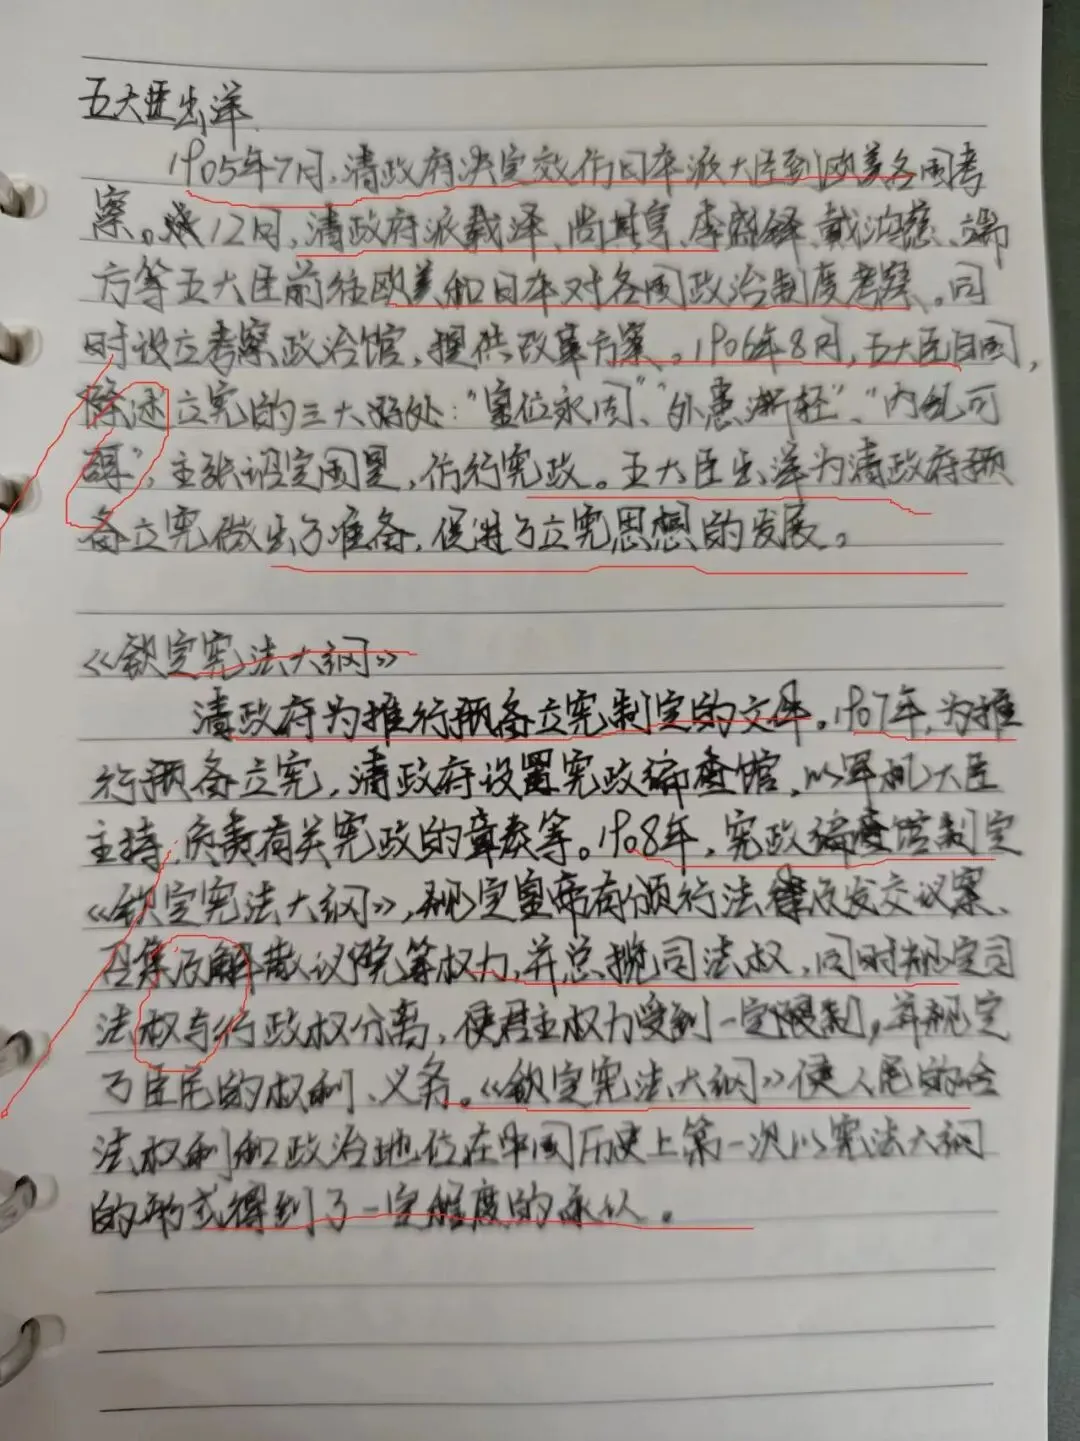 五大臣出洋
1905年7月,清政府决定效仿日本派大臣到欧美各国考
察。12月,清政府派载泽、尚其亨、李盛铎、戴鸿慈、端
方等五大臣前往欧美和日本对各国政治制度考察。同
时设立考察政治馆,提供改革方案。1906年8月,五大臣回国,
陈述立宪的三大好处:“皇位永固”、“外患渐轻”、“内乱可
弭”,主张诏定国是,仿行宪政。五大臣出洋为清政府预
备立宪做出了准备,促进了立宪思想的发展。
《钦定宪法大纲》
清政府为推行预备立宪制定的文件。1907年,为推
行预备立宪,清政府设置宪政编查馆,以军机大臣
主持,负责有关宪政的章奏等。1908年,宪政编查馆制定
《钦定宪法大纲》,规定皇帝有颁行法律及发交议案、
召集及解散议院等权力,并总揽司法权,同时规定司
法权与行政权分离,使君主权力受到一定限制,并规定
了臣民的权利、义务。《钦定宪法大纲》使人民的合
法权利和政治地位在中国历史上第一次以宪法大纲
的形式得到了一定程度的承认。